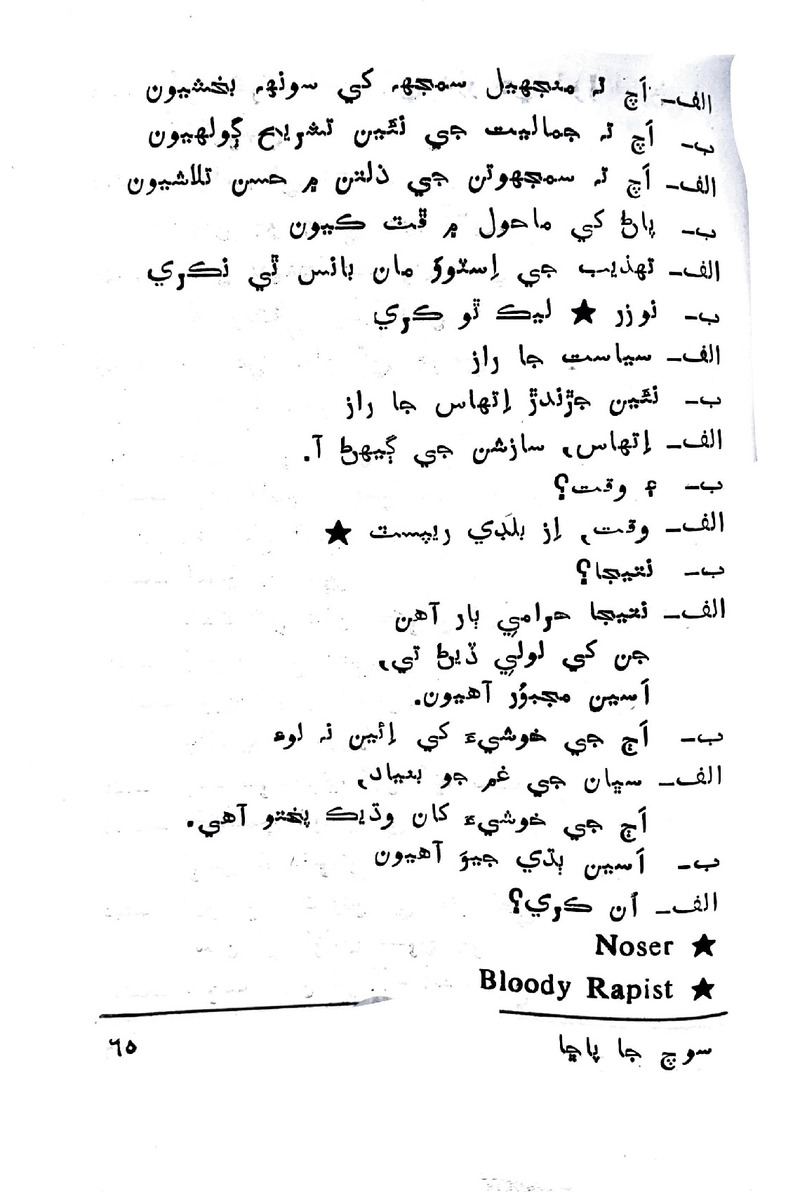 الف– اَچ تہ منجھيل سمجھہ کي سونھہ بخشيون
ب– اَچ تہ جماليت جي نئين تشريح ڳولهيون
الف– اَچ تہ سمجهوتن جي ذلتن ۾ حسن تلاشيون
ب– پاڻ کي ماحول ۾ ڦٽ ڪيون
الف– تهذيب جي اِسٽووَ مان بانس ٿي نڪري
ب– نوزر ★ ليڪ ٿو ڪري
الف– سياست جا راز
ب– نئين جڙندڙ اِتهاس جا راز
الف– اِتهاس، سازشن جي ڳيهڻ آ.
ب– ۽ وقت؟
الف– وقت، اِز بلَڊي ريپسٽ ★
ب– نتيجا؟
الف– نتيجا حرامي ٻار آهن
جن کي لولي ڏيڻ تي،
اَسين مجبوُر آهيون.
ب– اَڄ جي خوشيءَ کي اِئين نہ لوءِ
الف– سڀان جي غم جو بنياد،
اَڄ جي خوشيءَ کان وڌيڪ پختو آهي.
ب– اَسين ٻڌي جيوَ آهيون
الف– اُن ڪري؟
Noser ★
Bloody Rapist ★
سوچ جا پاڇا
٦٥